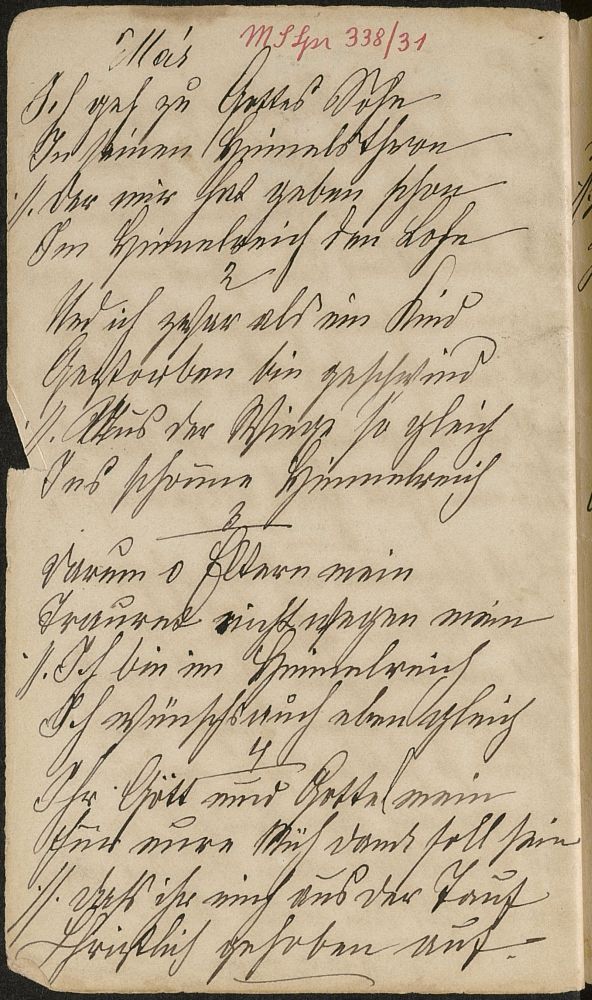 Más
MS Lpr 338/31
Ich geh zu Gottes Sohn
In seinen Himmelsthron
://. Der mir hat geben schon
Im Himmelreich den Lohn
2
Und ich zwar als ein Kind
Gestorben bin geschwind
://. Aus der Wiege so gleich
Ins schönne Himmelreich
3
Darum o Eltern mein
Trauret nicht wegen mein
://. Ich bin im Himmelreich
Ich wünschs auch eben gleich
4
Ihr Gött und Gottel mein
Für eure Müh dank soll sein
://. Daß ihr mich aus der Tauf
Christlich gehoben auf.